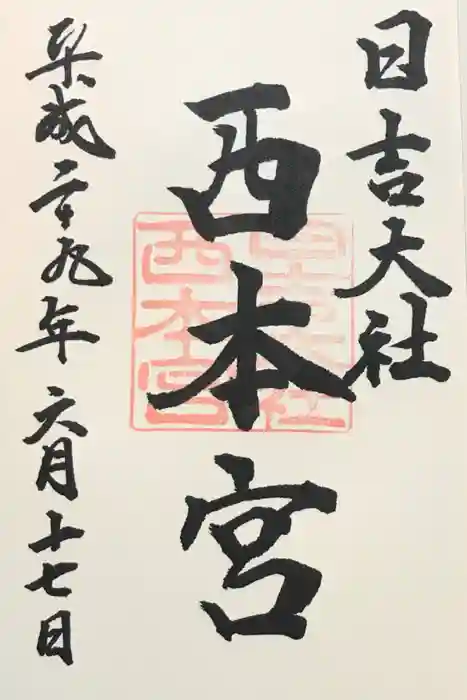 日吉大社
西本宮
平成二十九年六月十七日
日吉大社
西本宮